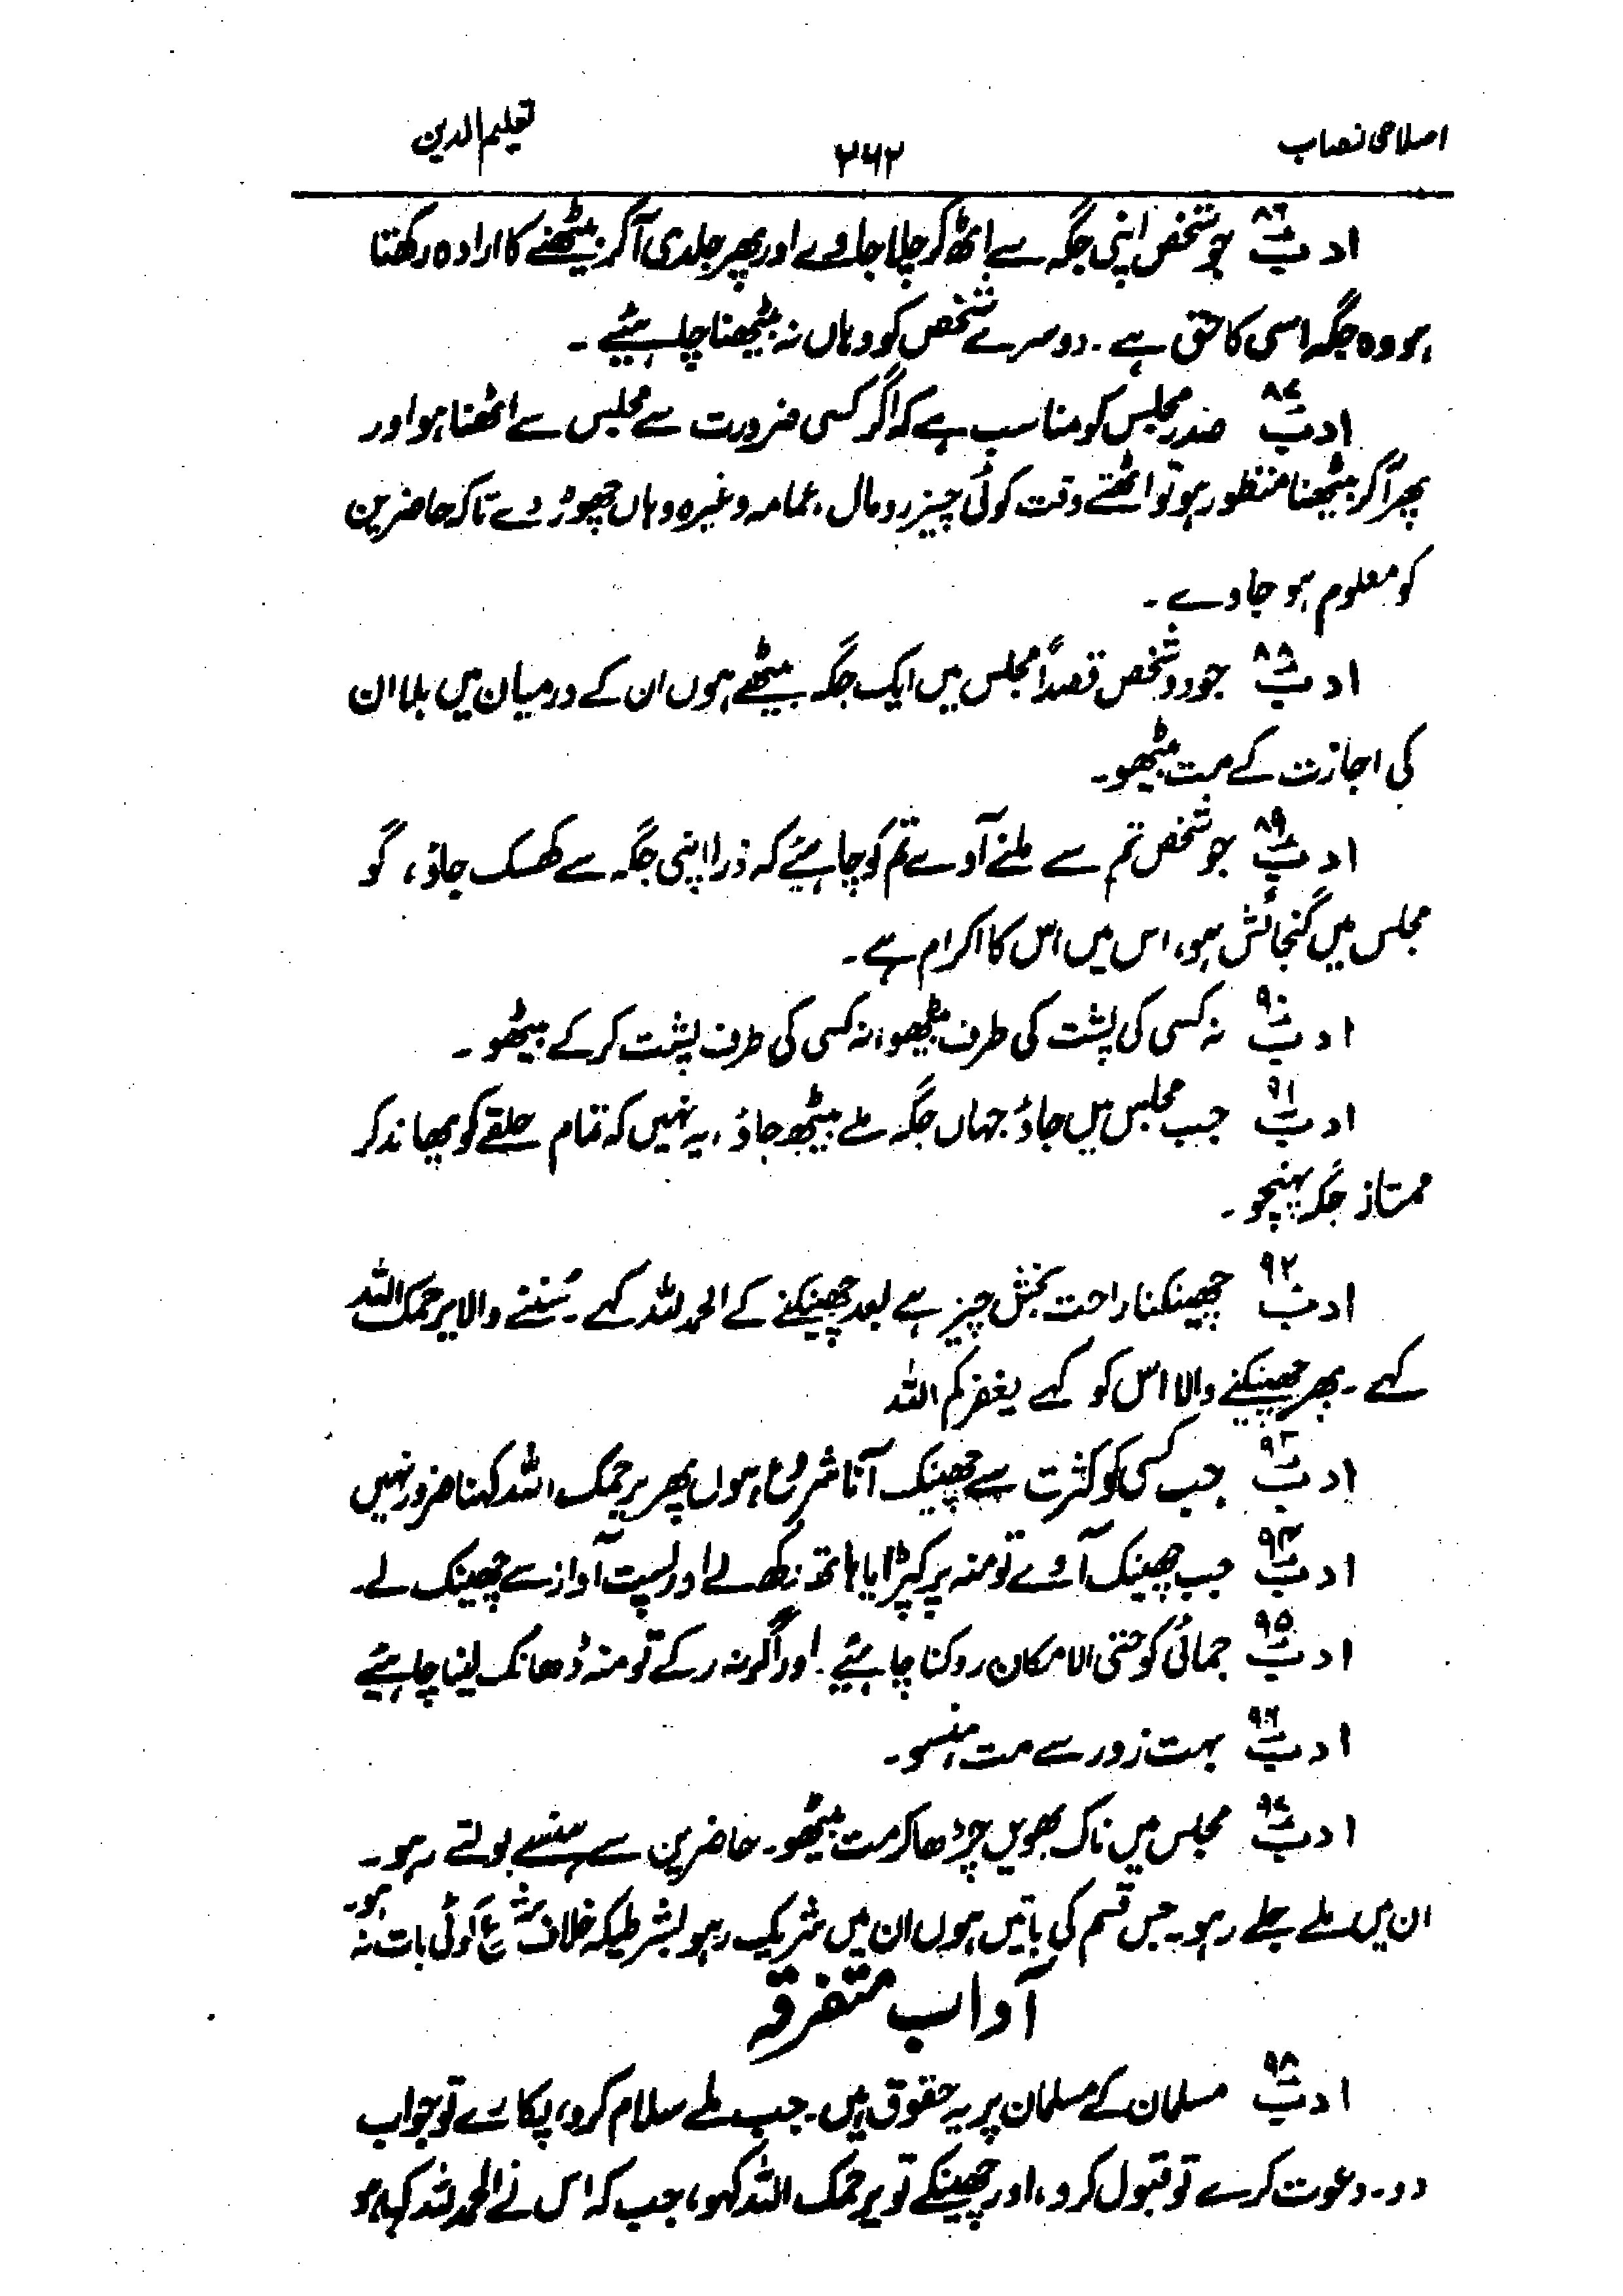 اصلاحی نصاب ۲۶۲ تعلیم الدین
ادب ۸۶ جو شخص اپنی جگہ سے اٹھ کر چلا جاوے اور پھر جلدی آ کر بیٹھنے کا ارادہ رکھتا
ہو وہ جگہ اسی کا حق ہے۔ دوسرے شخص کو وہاں نہ بیٹھنا چاہیئے۔
ادب ۸۷ صدر مجلس کو مناسب ہے کہ اگر کسی ضرورت سے مجلس سے اٹھنا ہو اور
پھر آ کر بیٹھنا منظور ہو تو اٹھتے وقت کوئی چیز رومال، عمامہ وغیرہ وہاں چھوڑ دے تاکہ حاضرین
کو معلوم ہو جاوے۔
ادب ۸۸ جو دو شخص قصداً مجلس میں ایک جگہ بیٹھے ہوں ان کے درمیان میں بلا ان
کی اجازت کے مت بیٹھو۔
ادب ۸۹ جو شخص تم سے ملنے آوے تم کو چاہیئے کہ ذرا اپنی جگہ سے کھسک جاؤ، گو
مجلس میں گنجائش ہو، اس میں اس کا اکرام ہے۔
ادب ۹۰ نہ کسی کی پشت کی طرف بیٹھو، نہ کسی کی طرف پشت کر کے بیٹھو۔
ادب ۹۱ جب مجلس میں جاؤ جہاں جگہ ملے بیٹھ جاؤ، یہ نہیں کہ تمام حلقے کو پھاند کر
ممتاز جگہ پہنچو۔
ادب ۹۲ چھینکنا راحت بخش چیز ہے بعد چھینکنے کے الحمد للہ کہے۔ سُننے والا یرحمک اللہ
کہے۔ پھر چھینکنے والا اس کو کہے یغفر لکم اللہ
ادب ۹۳ جب کسی کو کثرت سے چھینک آنا شروع ہوں پھر یرحمک اللہ کہنا ضرور نہیں
ادب ۹۴ جب چھینک آوے تو منہ پر کپڑا یا ہاتھ رکھ لے اور پست آواز سے چھینک لے۔
ادب ۹۵ جمائی کو حتی الامکان روکنا چاہیئے۔ اور اگر نہ رکے تو منہ ڈھانک لینا چاہیئے
ادب ۹۶ بہت زور سے مت ہنسو۔
ادب ۹۷ مجلس میں ناک بھویں چڑھا کر مت بیٹھو۔ حاضرین سے ہنستے بولتے رہو۔
ان میں ملے جلے رہو۔ جس قسم کی باتیں ہوں ان میں شریک رہو بشرطیکہ خلاف شرع کوئی بات نہ ہو۔
آداب متفرقہ
ادب ۹۸ مسلمان کے مسلمان پر یہ حقوق ہیں۔ جب ملے سلام کرو، پکارے تو جواب
دو۔ دعوت کرے تو قبول کرو، اور چھینکے تو یرحمک اللہ کہو، جب کہ اس نے الحمد للہ کہا ہو